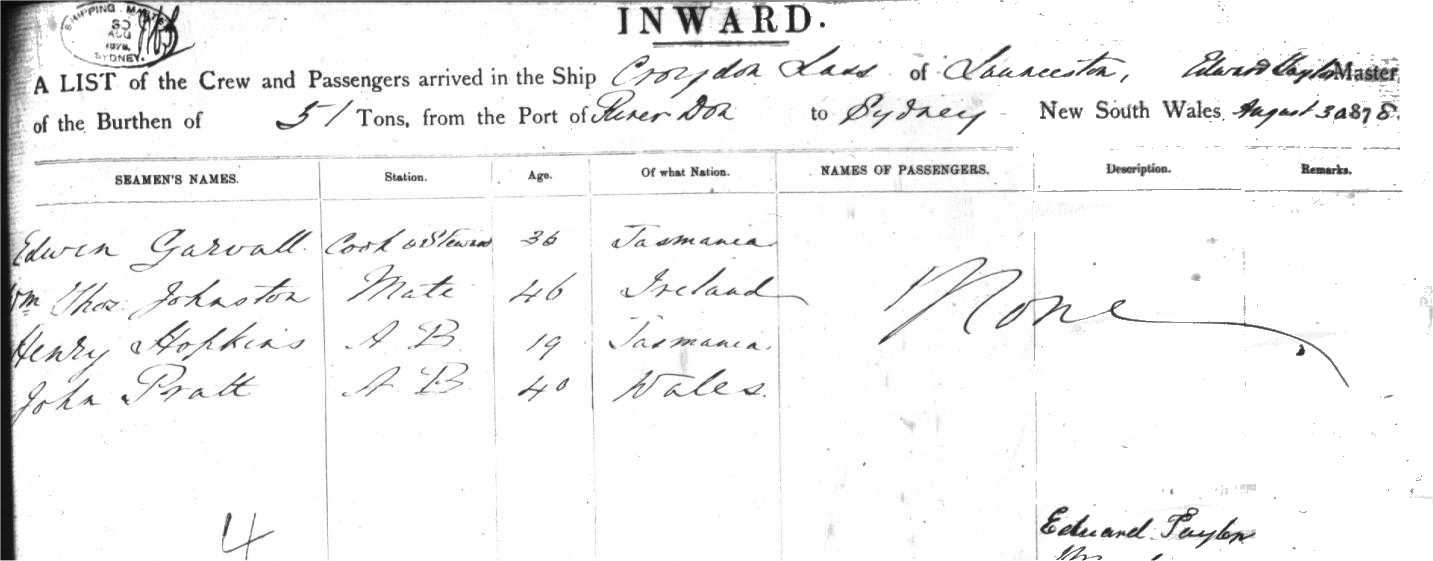 INWARD.
SHIPPING MASTER
30
AUG
1878
SYDNEY.
A LIST of the Crew and Passengers arrived in the Ship Croydon Lass of Launceston, Edward Taylor Master
of the Burthen of 51 Tons, from the Port of River Don to Sydney New South Wales August 30 1878.
SEAMEN'S NAMES. Station. Age. Of what Nation. NAMES OF PASSENGERS. Description. Remarks.
Edwin Garvall. Cook & Steward 36 Tasmania
Wm Thos. Johnston Mate 46 Ireland
None
Henry Hopkins A B 19 Tasmania.
John Pratt A B 40 Wales.
4
Edward Taylor